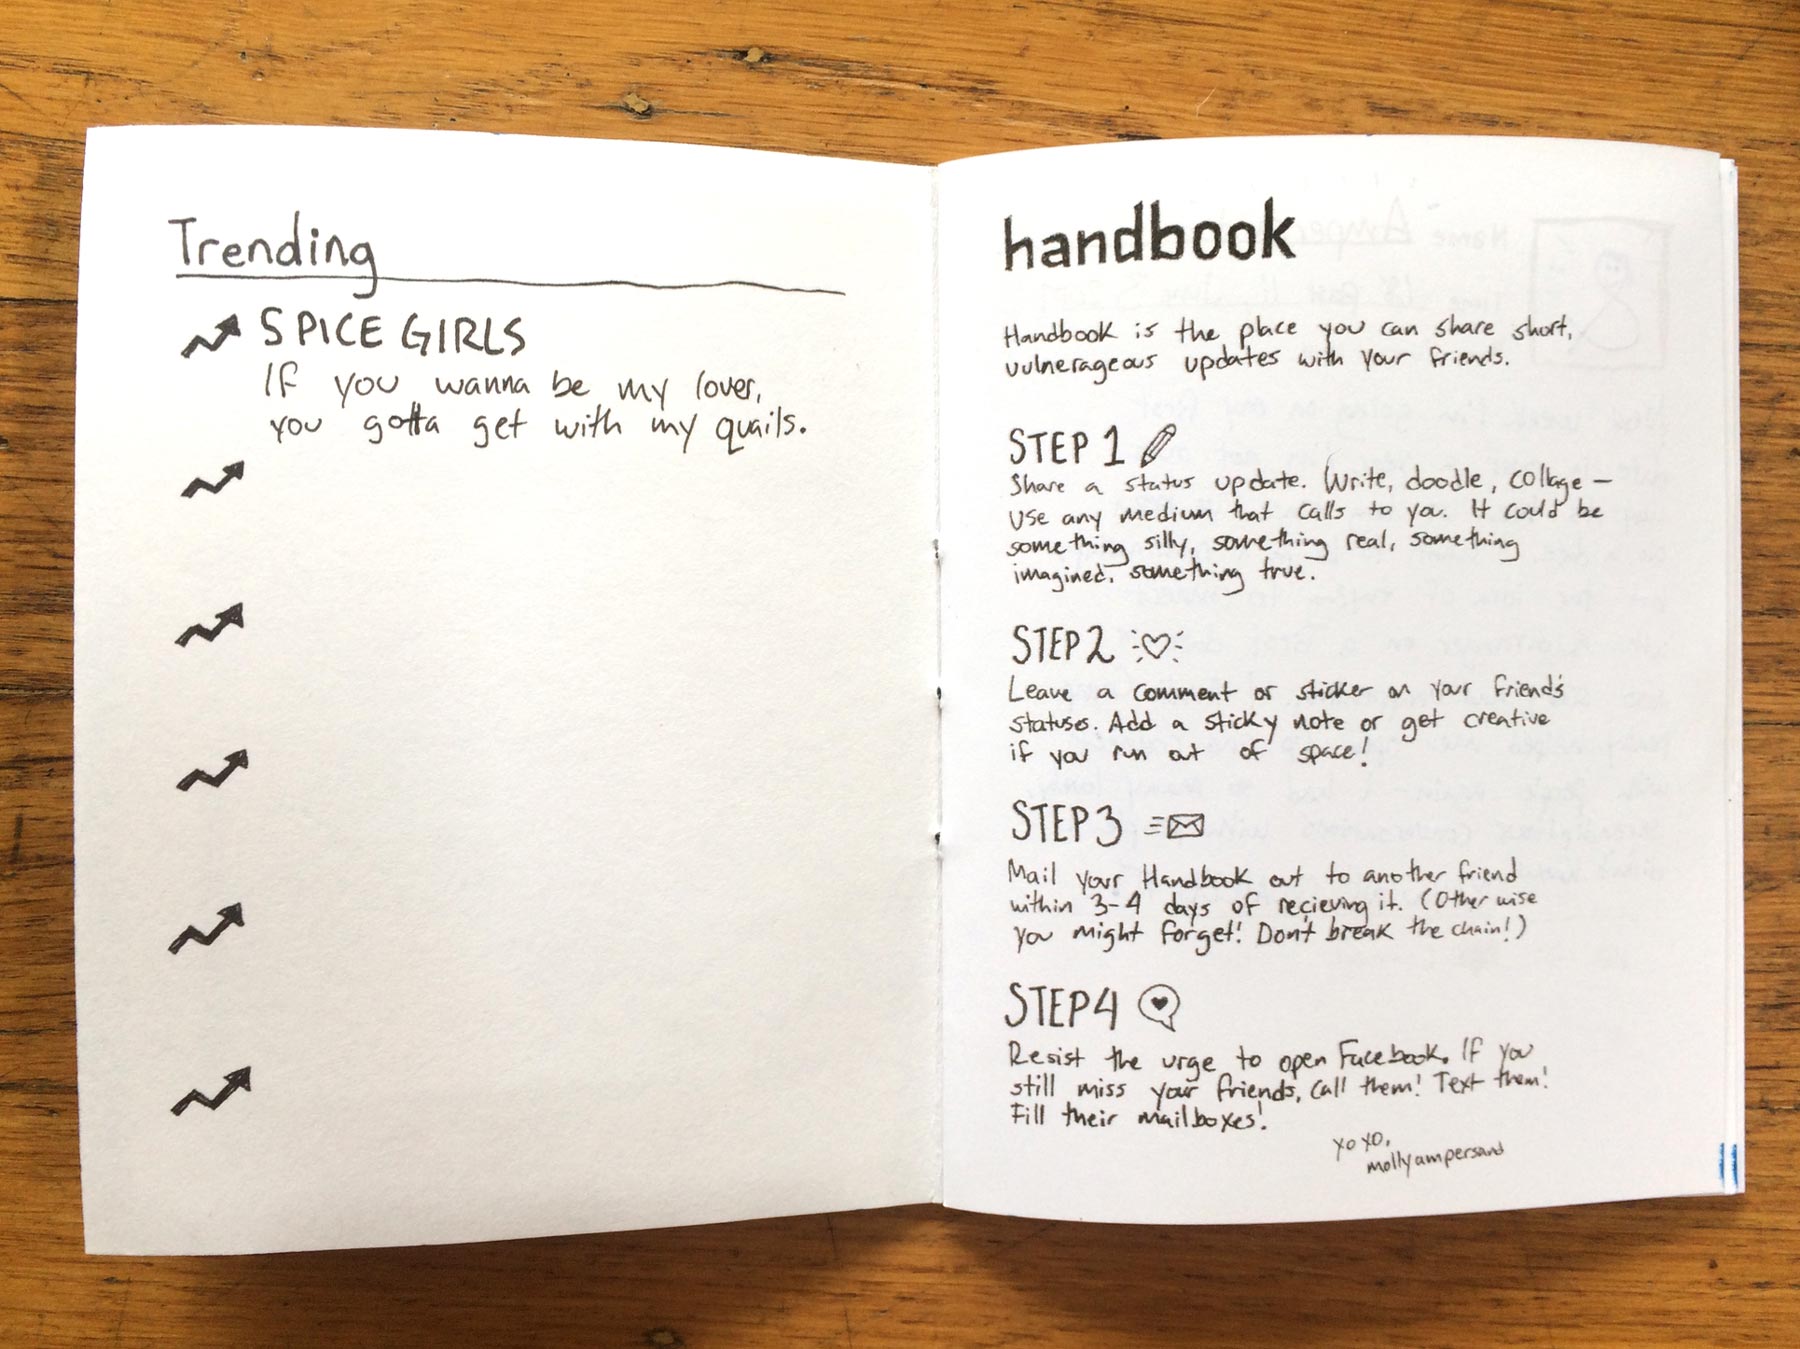 Trending
SPICE GIRLS
If you wanna be my lover,
you gotta get with my quails.
handbook
Handbook is the place you can share short,
vulnerageous updates with your friends.
STEP 1
Share a status update. Write, doodle, collage —
use any medium that calls to you. It could be
something silly, something real, something
imagined, something true.
STEP 2
Leave a comment or sticker on your friend's
statuses. Add a sticky note or get creative
if you run out of space!
STEP 3
Mail your Handbook out to another friend
within 3-4 days of recieving it. (Otherwise
you might forget! Don't break the chain!)
STEP 4
Resist the urge to open Facebook. If you
still miss your friends, call them! Text them!
Fill their mailboxes!
xoxo,
mollyampersand